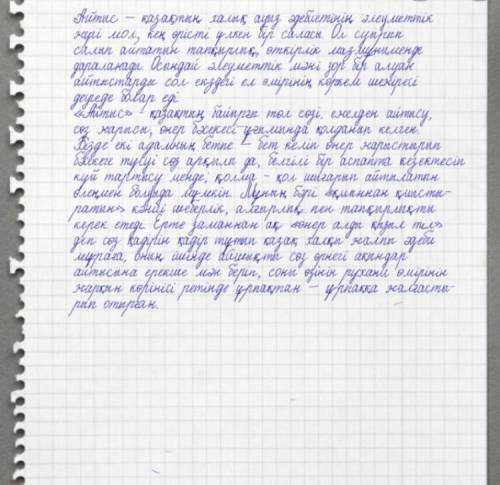 Айтыс – қазақтың халық ауыз әдебиетінің әлеуметтік
жүгі мол, кең өрісті үлкен бір саласы. Ол суырып
салып айтатын тапқырлық, өткірлік мазмұныменде
дараланады. Осындай әлеуметтік мәні зор бір алуан
айтыстарды сол кездегі ел өмірінің көркем шежіресі
деуеде болар еді.
«Айтыс» - қазақтың байырғы төл сөзі, ежелден айтысу,
сөз жарысы, өнер бәсекесі ұғымында қолданып келген.
Кезде екі адамның бетпе – бет келіп өнер жарыстырып
бәсекеге түсуі сөз арқылы да, белгілі бір аспапта кезектесіп
күй тартысу менде, қолма - қол шығарып айтылатын
өлеңмен болуда мүмкін. Мұның бәрі «қиыннан қиысты-
ратын» кәнігі шеберлік, алғырлық пен тапқырлықты
керек етеді. Ерте заманнан ақ «өнер алды қызыл тіл»
деп сөз қадірін қадір тұтып қазақ халқы жалпы әдеби
мұраға, оның ішінде айшықты сөз өрнегі ақындар
айтысына ерекше мән беріп, соны өзінің рухани өмірінің
жарқын көрінісі ретінде ұрпақтан – ұрпаққа жалғасты-
рып отырған.